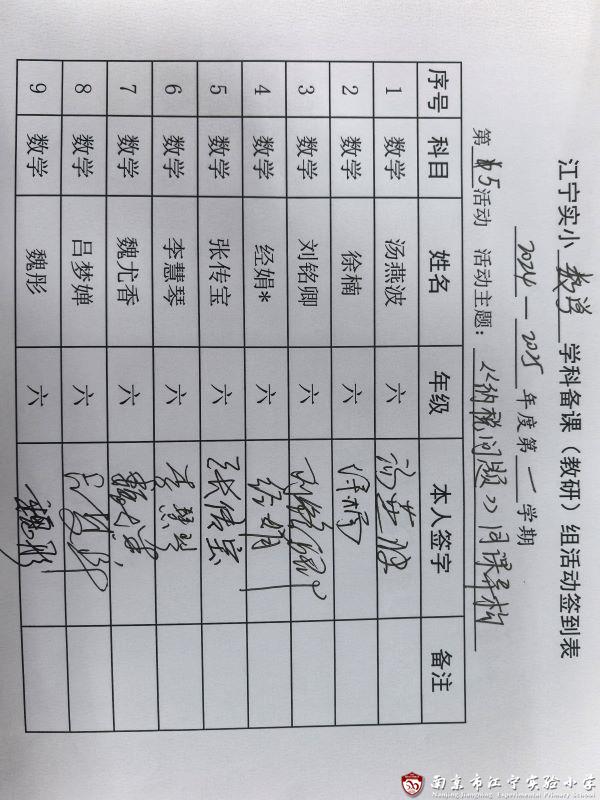 江宁实小 数学 学科备课（教研）组活动签到表
2024—2025 年度第 一 学期
第 5 活动 活动主题：《纳税问题》同课异构
序号 科目 姓名 年级 本人签字 备注
1 数学 汤燕波 六 汤燕波
2 数学 徐楠 六 徐楠
3 数学 刘铭卿 六 刘铭卿
4 数学 经娟* 六 经娟
5 数学 张传宝 六 张传宝
6 数学 李慧琴 六 李慧琴
7 数学 魏尤香 六
8 数学 吕梦婵 六 吕梦婵
9 数学 魏彤 六 魏彤
南京市江宁实验小学
Nanjing Jiangning Experimental Primary School